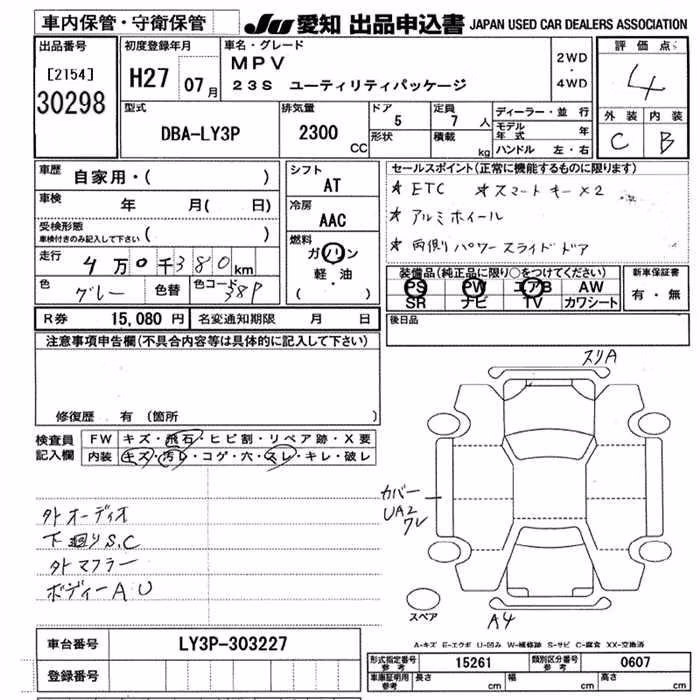 車内保管・守衛保管
JU 愛知 出品申込書 JAPAN USED CAR DEALERS ASSOCIATION
出品番号
[2154]
30298
初度登録年月
H27 07月
車名・グレード
MPV
23S ユーティリティパッケージ
2WD
・
4WD
評価点
4
外装 内装
C B
型式
DBA-LY3P
排気量
2300 CC
ドア
5
形状
定員
7人
積載
kg
ディーラー・並行
モデル年式 年
ハンドル 左・右
車歴
自家用・( )
車検 年 月( 日)
受検形態
車検付きのみ記入して下さい ( )
走行 4万0千380km
色 グレー 色替 色コード 38P
シフト
AT
冷房
AAC
燃料
ガソリン
軽・油
( )
セールスポイント(正常に機能するものに限ります)
* ETC * スマートキー×2
* アルミホイール
* 両側パワースライドドア
装備品(純正品に限り○をつけてください)
PS PW エアB AW
SR ナビ TV カワシート
新車保証書
有・無
後日品
R券 15,080円 名変通知期限 月 日
注意事項申告欄(不具合内容等は具体的に記入して下さい)
修復歴 有 (箇所
検査員記入欄
FW キズ・飛石・ヒビ割・リペア跡・X要
内装 キズ・汚レ・コゲ・穴・スレ・キレ・破レ
外オーディオ
下廻りS.C
外マフラー
ボディーAU
スリA
カバー
UA2
ワレ
スペア
A4
A-キズ E-エクボ U-凹み W-補修跡 S-サビ C-腐食 XX-交換済
車台番号 LY3P-303227
登録番号
形式指定番号 参考 15261 類別区分番号 参考 0607
車庫証明用 参考 長さ cm 幅 cm 高さ cm